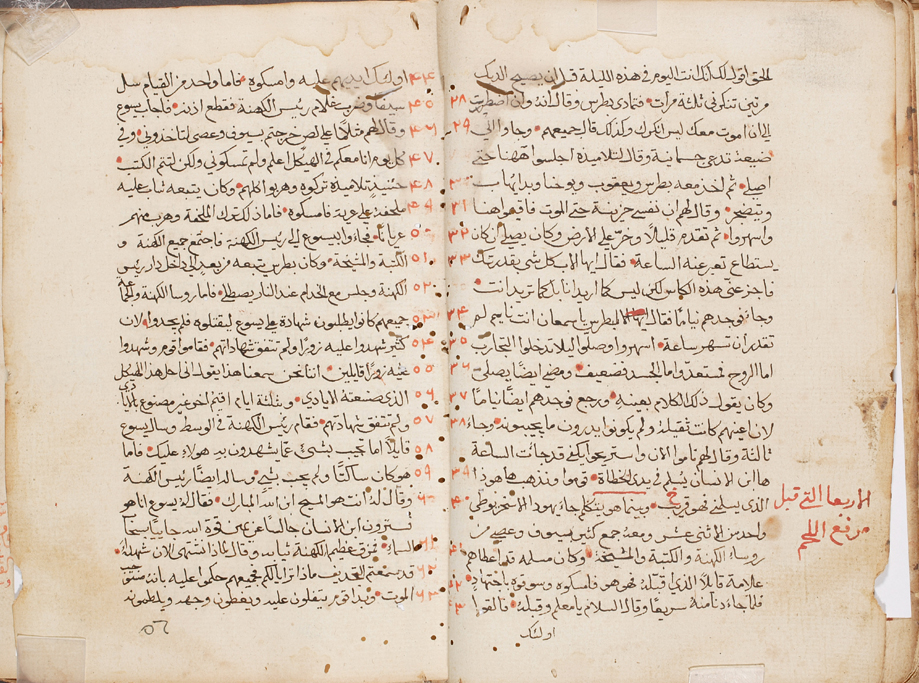 الحق اقول لك انك انت اليوم في هذه الليلة قبل ان يصيح الديك
مرتين تنكرني ثلثة مرات • فتمادى بطرس وقال انه وان اضطريت
الى ان اموت معك ليس انكرك وكذلك قال جميعهم • وجاوا الى ٢٩
ضيعة تدعى جسمانية وقال لتلاميذه اجلسوا ههنا حتى
اصلي • ثم اخذ معه بطرس ويعقوب ويوحنا وبدا يهاب
ويتضجر • وقال لهم ان نفسي حزينة حتى الموت فاقيموا هنا ٣١
واسهروا • ثم تقدم قليلا وخر على الارض وكان يصلي ان كان ٣٢
يستطاع تعبر عنه الساعة • فقال ايها الاب كل شي بقدرتك ٣٣
فاجز عني هذه الكاس لكن ليس كما اريد انا بل كما تريد انت •
وجاء فوجدهم نياما فقال لبطرس يا سمعان انت نايم لم ٣٤
تقدر ان تسهر ساعة • اسهروا وصلوا ليلا تدخلوا التجارب ٣٥
اما الروح فمستعد واما الجسد فضعيف • ومضى ايضا يصلي ٣٦
وكان يقول ذلك الكلام بعينه • ورجع فوجدهم ايضا نياما ٣٧
لان اعينهم كانت ثقيلة ولم يكونوا يدرون ما يجيبونه • وجاء ٣٨
ثالثة وقال لهم ناموا الان واستريحوا يكفي قد جات الساعة
ها ان ابن الانسان يسلم في يدي الخطاة • قوموا وننذهب ها هوذا ٣٩
الذي يسلمني فهو قريب • وبينما هو يتكلم جاء يهودا الاسخريوطي ٤٠
واحد من الاثني عشر ومعه جمع كثير بسيوف وعصي من
روساء الكهنة والكتبة والمشيخة • وكان مسلمه قد اعطاهم ٤١
علامة قايلا الذي اقبله فهو هو فامسكوه وسوقوه باجتهاد • ٤٢
فلما جاء دنا منه سريعا وقال السلام يا معلم وقبله • فالقوا ٤٣
اولئك
الاربعا التي قبل
مرفع اللحم
٤٤ اولئك ايديهم عليه وامسكوه • فاما واحد من القيام سل
٤٥ سيفا وضرب غلام رييس الكهنة فقطع اذنه • فاجاب يسوع
٤٦ وقال لهم مثلما على لص خرجتم بسيوف وعصي لتاخذوني • وفي
٤٧ كل يوم انا معكم في الهيكل اعلم ولم تمسكوني ولكن لتتم الكتب •
٤٨ حينيذ تلاميذه تركوه وهربوا كلهم • وكان يتبعه شاب عليه
٤٩ ملحفة على عريه فامسكوه • فاما ذلك فترك الملحفة وهرب منهم
٥٠ عريانا • فجاءوا بيسوع الى رييس الكهنة فاجتمع جميع الكهنة و
٥١ الكتبة والمشيخة • وكان بطرس يتبعه من بعيد الى داخل دار رييس
٥٢ الكهنة وجلس مع الخدام عند النار يصطلي • فاما روسا الكهنة والجماعة
٥٣ جميعهم كانوا يطلبون شهادة على يسوع ليقتلوه فلم يجدوا • لان
٥٤ كثير شهدوا عليه زورا ولم تتفق شهاداتهم • فقاموا قوم وشهدوا
٥٥ عليه زورا قايلين • اننا نحن سمعنا هذا يقول اني احل هذا الهيكل
٥٦ الذي صنعته الايادي • وبثلثة ايام اقيم اخر غير مصنوع بايادي
٥٧ ولم تتفق شهادتهم • فقام رييس الكهنة في الوسط وسال يسوع
٥٨ قايلا اما تجيب بشيء عما يشهدون به هولاء عليك • فاما
٥٩ هو كان ساكتا ولم يجب بشي • وساله ايضا رييس الكهنة
٦٠ وقال له انت هو المسيح ابن الله المبارك • فقال له يسوع انا هو
سترون ابن الانسان جالسا عن يمين قوة الله جاييا سحاب
٦١ السماء • فمزق عظيم الكهنة ثيابه وقال ماذا نشتهي الان شهداء •
٦٢ قد سمعتم التجديف ماذا ترايا لكم فجميعهم حكموا عليه بانه مستوجب
٦٣ الموت • وبدا قوم يتفلون عليه ويغطون وجهه ويلطمونه
٥٦